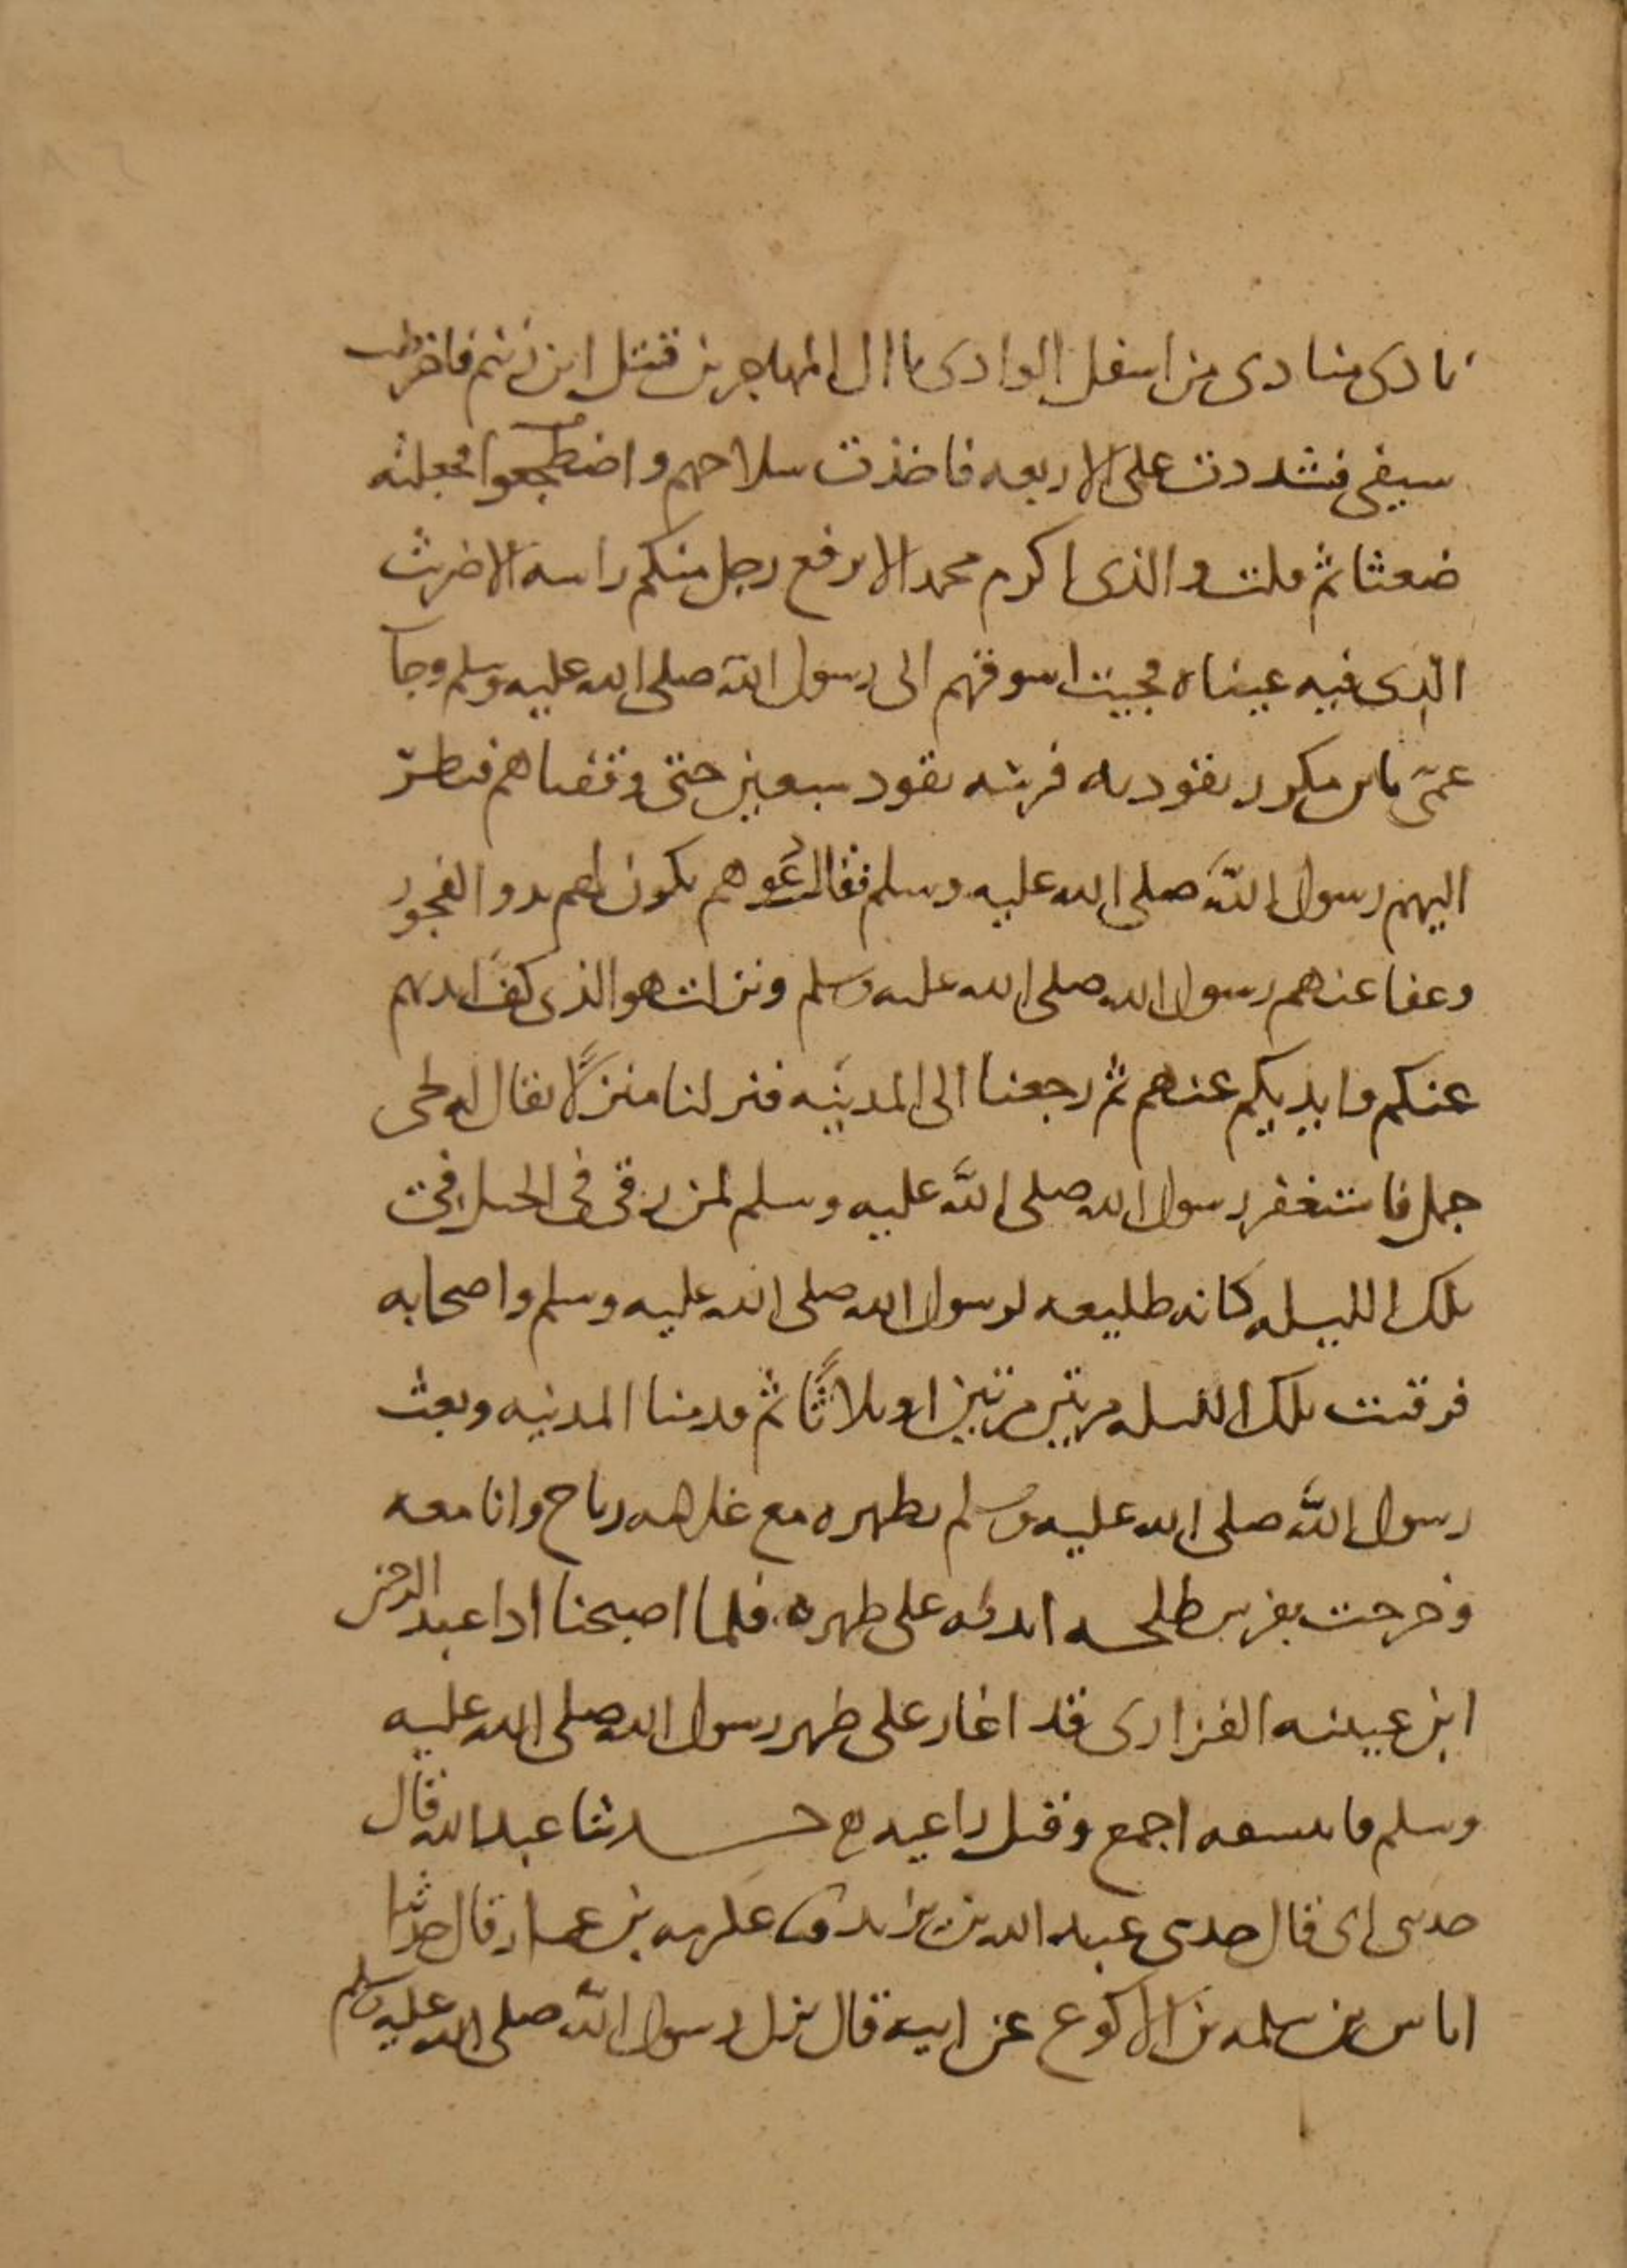 نادى منادى من اسفل الوادى يا ال المهاجرين قتل ابن زنيم فاخترطت
سيفى فشددت على الاربعه فاخذت سلاحهم واضطجعوا فجعلته
ضعثا ثم قلت والذى اكرم محمدا لا يرفع رجل منكم راسه الا ضربت
الذى فيه عيناه فجيت اسوقهم الى رسول الله صلى الله عليه وسلم وجآ
عمّى بابن مكرز يقود به فرسه يقود سبعين حتى وقفناهم فنظر
اليهم رسول الله صلى الله عليه وسلم فقال دعوهم يكون لهم بدو الفجور
وعفا عنهم رسول الله صلى الله عليه وسلم ونزلت هو الذى كف ايديهم
عنكم وايديكم عنهم ثم رجعنا الى المدينه فنزلنا منزلًا يقال له لحى
جمل فاستغفر رسول الله صلى الله عليه وسلم لمن رقى فى الجبل فى
تلك الليله كانه طليعه لرسول الله صلى الله عليه وسلم واصحابه
فرقيت تلك الليله مرتين مرتين او ثلاثًا ثم قدمنا المدينه وبعث
رسول الله صلى الله عليه وسلم بظهره مع غلامه رباح وانا معه
وخرجت بفرس طلحه انديه على ظهره فلما اصبحنا اذا عبد الرحمن
ابن عيينه الفزارى قد اغار على ظهر رسول الله صلى الله عليه
وسلم فانتسفه اجمع وقتل راعيه ح حدثنا عبد الله قال
حدثنى ابى قال حدثنى عبد الله بن يزيد عكرمه بن عمار قال حدثنا
اياس بن سلمه بن الاكوع عن ابيه قال نزل رسول الله صلى الله عليه وسلم